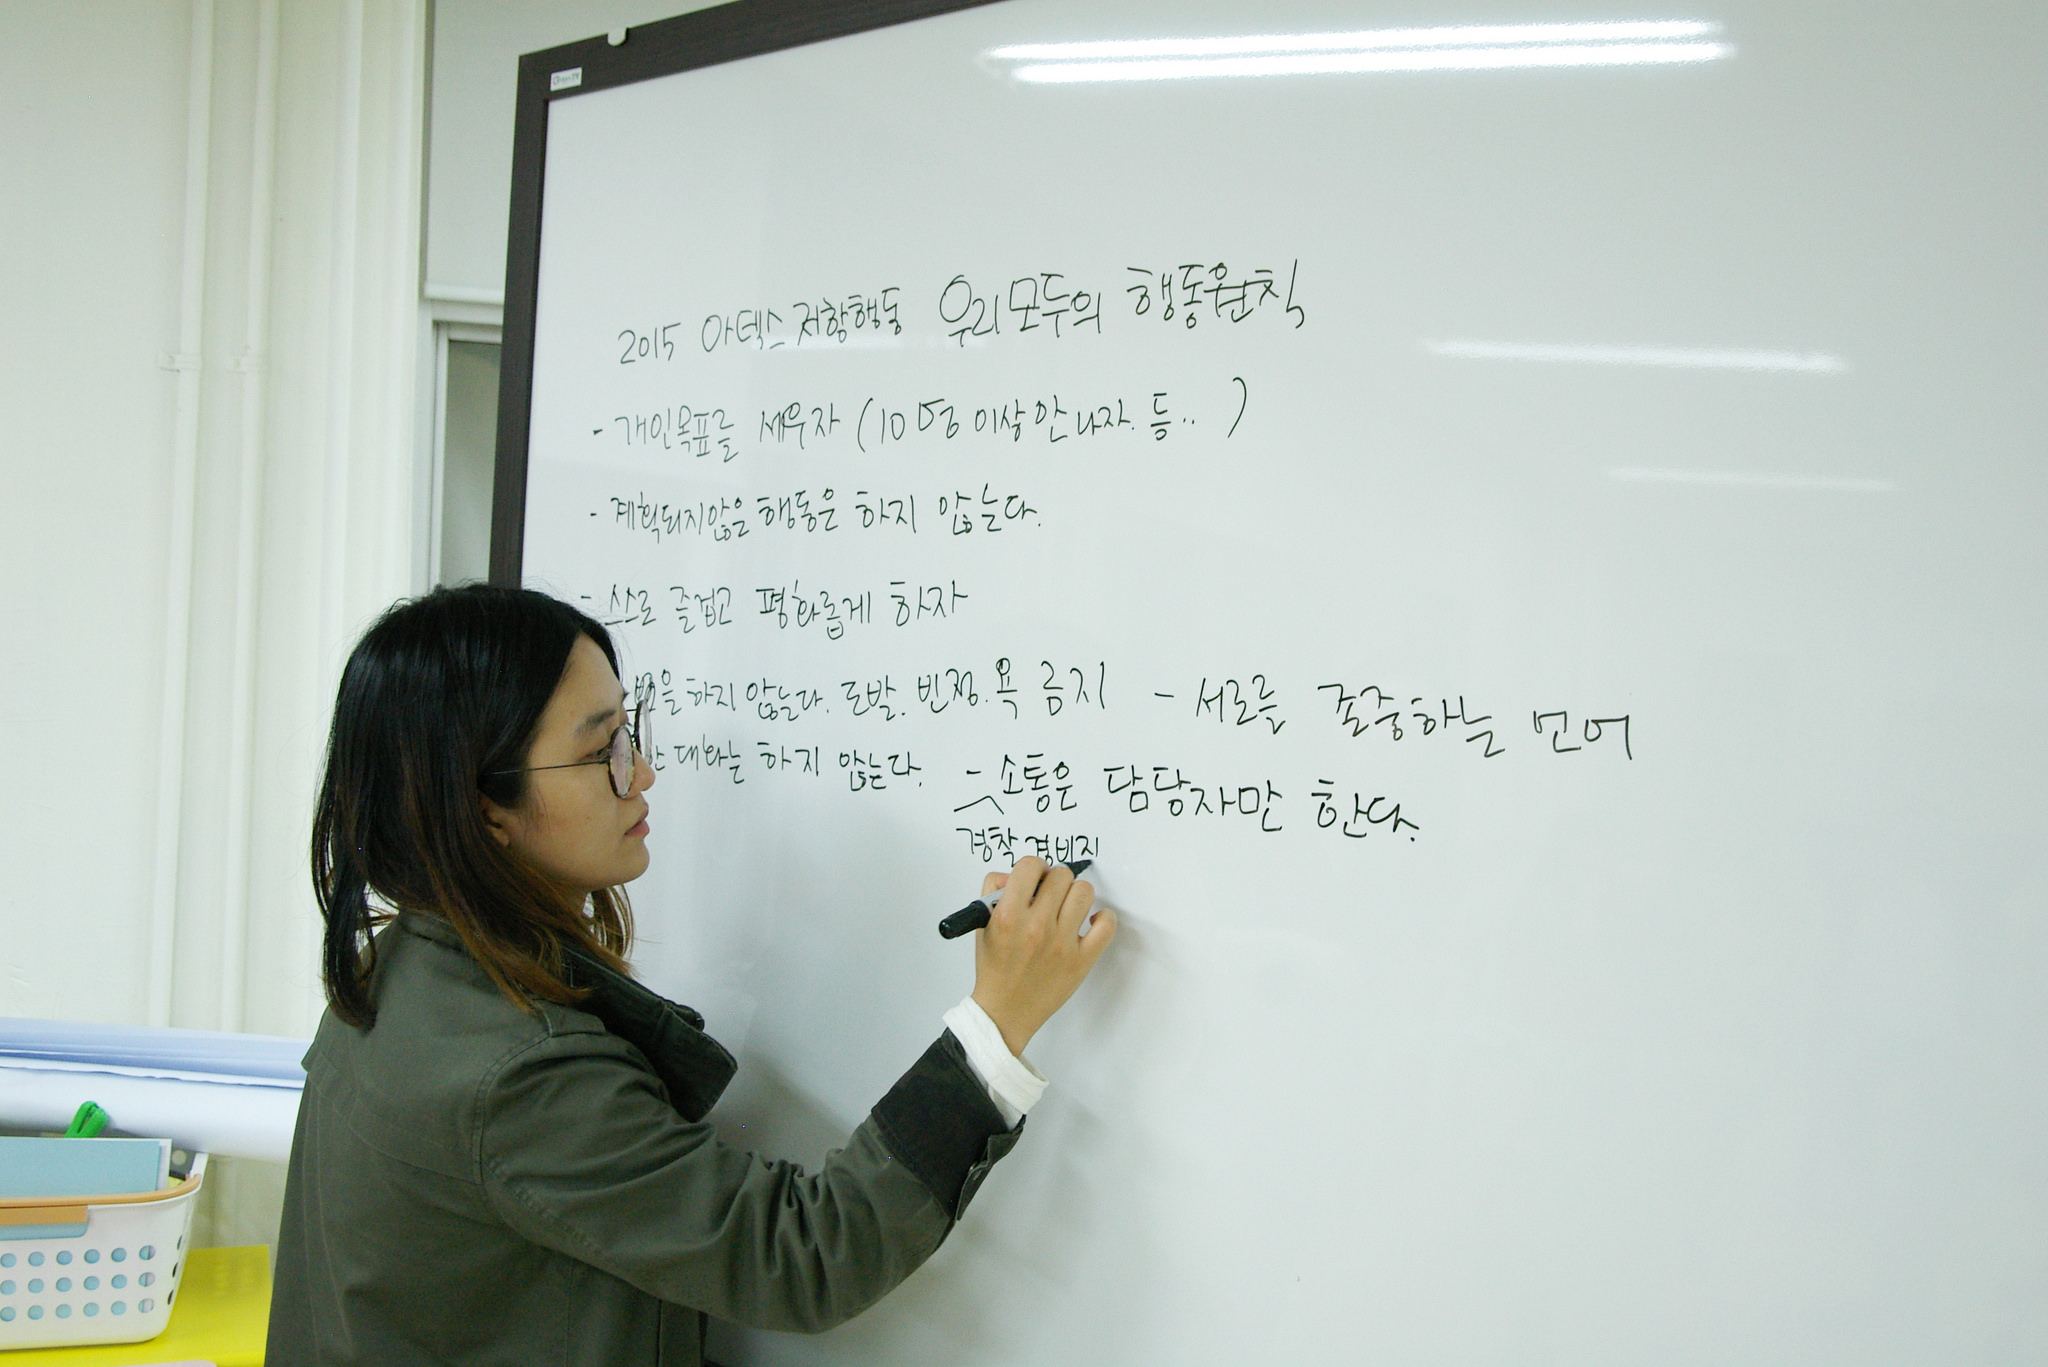 2015 아덱스 저항행동 우리 모두의 행동원칙
- 개인목표를 세우자 (10명 이상 만나자. 등..)
- 계획되지않은 행동은 하지 않는다.
- 스스로 즐겁고 평화롭게 하자
을 하지 않는다. 도발. 빈정. 욕 금지 - 서로를 존중하는 언어
한 대화는 하지 않는다. - 소통은 담당자만 한다.
경찰 경비지